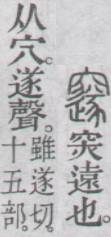 邃 突遠也。
从穴。遂聲。雖遂切。
十五部。